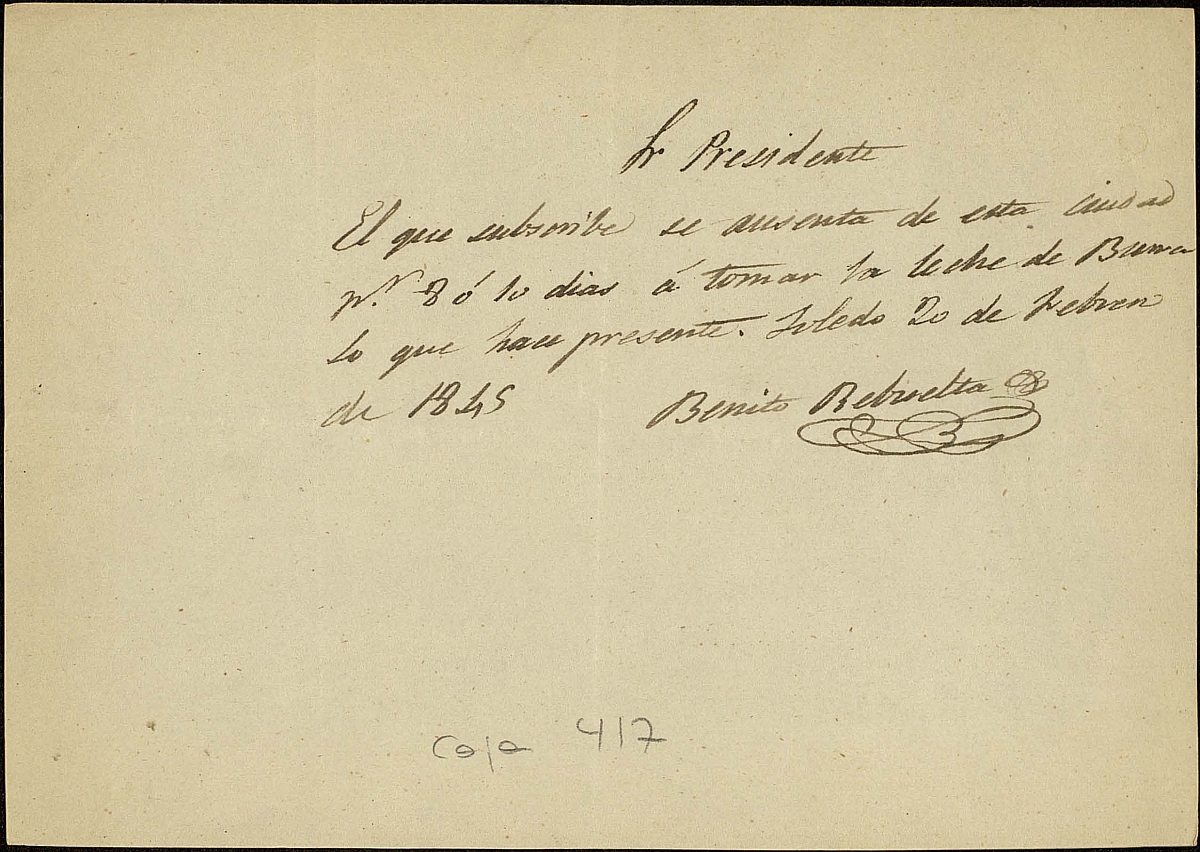 Sr Presidente
El que subscribe se ausenta de esta ciudad
pr. 8 ó 10 dias á tomar la leche de Burra
lo que hace presente. Toledo 20 de Febrero
de 1845 Benito Rebuelta
Caja 417